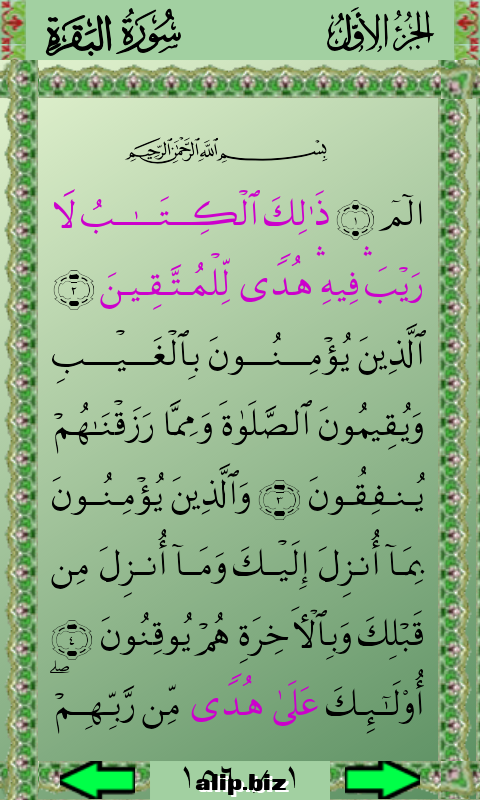 الجزء الأول سورة البقرة
بِسْمِ ٱللَّهِ ٱلرَّحْمَٰنِ ٱلرَّحِيمِ
الٓمٓ ١ ذَٰلِكَ ٱلْكِتَـٰبُ لَا
رَيْبَ ۛ فِيهِ ۛ هُدًى لِّلْمُتَّقِينَ ٢
ٱلَّذِينَ يُؤْمِنُونَ بِٱلْغَيْبِ
وَيُقِيمُونَ ٱلصَّلَوٰةَ وَمِمَّا رَزَقْنَـٰهُمْ
يُنفِقُونَ ٣ وَٱلَّذِينَ يُؤْمِنُونَ
بِمَآ أُنزِلَ إِلَيْكَ وَمَآ أُنزِلَ مِن
قَبْلِكَ وَبِٱلْأَخِرَةِ هُمْ يُوقِنُونَ ٤
أُوْلَـٰٓئِكَ عَلَىٰ هُدًى مِّن رَّبِّهِمْ ۖ
alip.biz